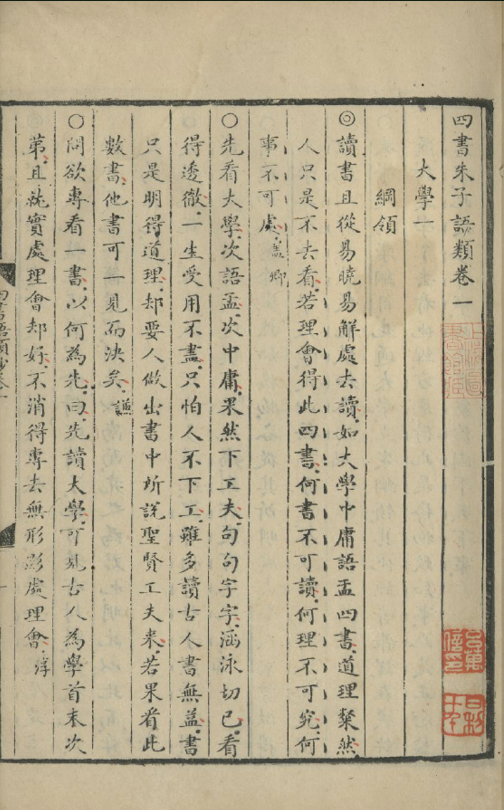 四書朱子語類卷一
大學一
綱領
◎讀書且從易曉易解處去讀如大學中庸語孟四書道理粲然
人只是不去看若理會得此四書何書不可讀何理不可究何
事不可處蓋卿
○先看大學次語孟次中庸果然下工夫句句字字涵泳切己看
得透徹一生受用不盡只怕人不下工雖多讀古人書無益書
只是明得道理却要人做出書中所說聖賢工夫來若果看此
數書他書可一見而決矣謙
○問欲專看一書以何為先曰先讀大學可見古人為學首末次
第且就實處理會却好不消得專去無形影處理會淳
四書語類鈔卷一